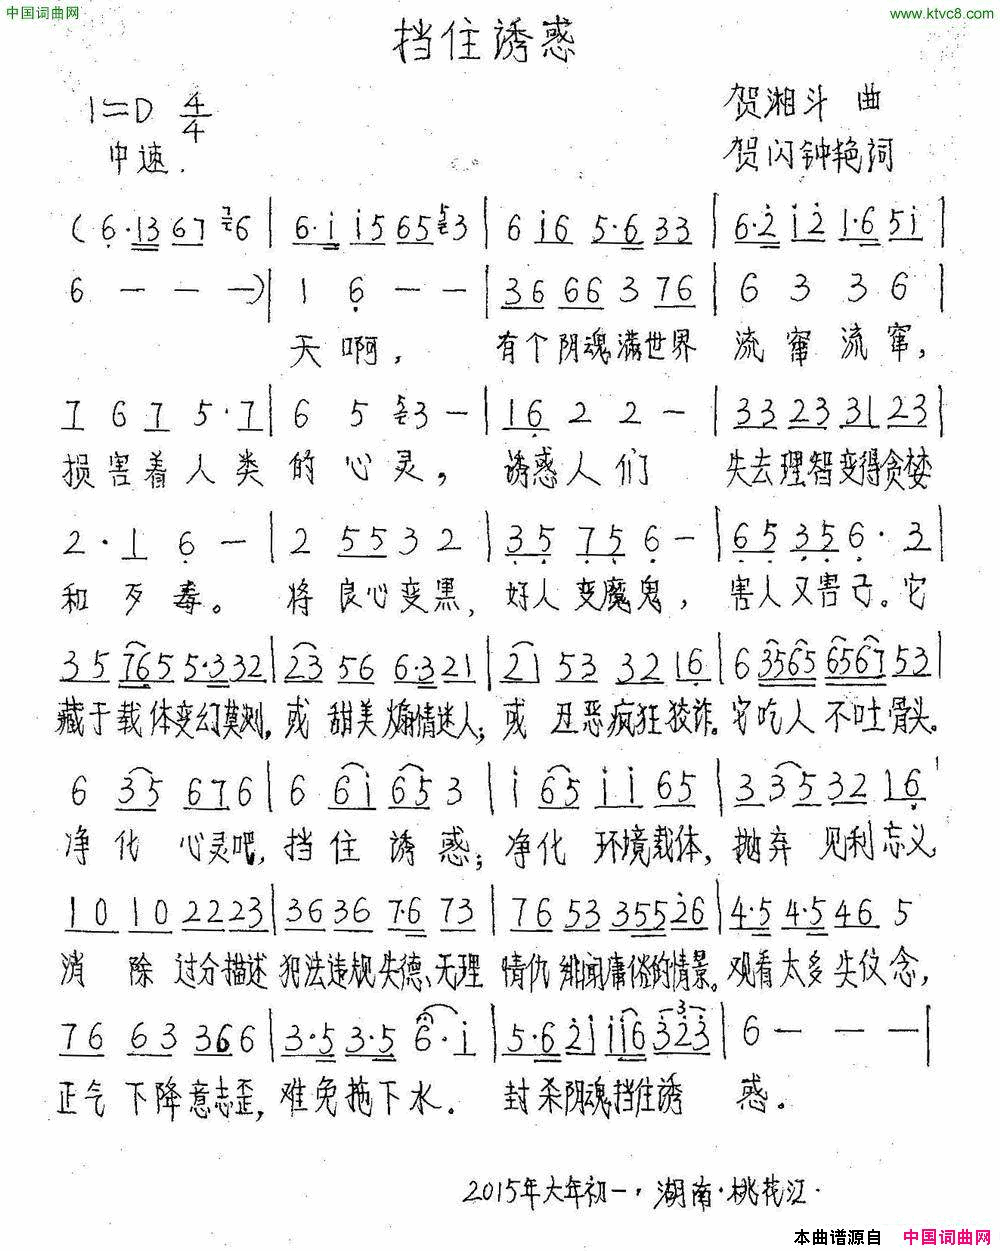 中国词曲网
www.ktvc8.com
挡住诱惑
1=D 4/4
贺湘斗 曲
中速.
贺闪钟艳词
(6·13 67 76 | 6·i i5 65 53 | 6 i6 5·6 33 | 6·2 i2 1·6 5i |
6 — — —)| 1 6 — — | 36 66 3 76 | 6 3 3 6 |
天啊, 有个阴魂满世界 流窜流窜,
7 6 7 5·7 | 6 5 53 — | 16 2 2 — | 33 23 31 23 |
损害着人类的心灵。 诱惑人们 失去理智变得贪婪
2·1 6 — | 2 55 3 2 | 35 75 6 — | 65 35 6·3 |
和歹毒。 将良心变黑, 好人变魔鬼, 害人又害己。它
35 765 5·3 32 | 23 56 6·3 21 | 21 53 32 16 | 6 3565 6567 53 |
藏于载体变幻莫测, 或甜美煽情迷人; 或丑恶疯狂狡诈。它吃人不吐骨头。
6 35 67 6 | 6 6i 65 3 | i 65 ii 65 | 3 35 32 16 |
净化心灵吧, 挡住诱惑; 净化环境载体, 抛弃见利忘义
10 10 22 23 | 36 36 7·6 73 | 76 53 355 26 | 4·5 4·5 46 5
消除过分描述犯法违规失德、无理情仇绯闻庸俗的情景。观看太多失仪念,
76 63 366 6 | 3·5 3·5 6·i | 5·6 2i ii6 323 | 6 — — — |
正气下降意志歪, 难免拖下水. 封杀阴魂挡住诱惑。
2015年大年初一, 湖南·桃花江.
本曲谱源自 中国词曲网